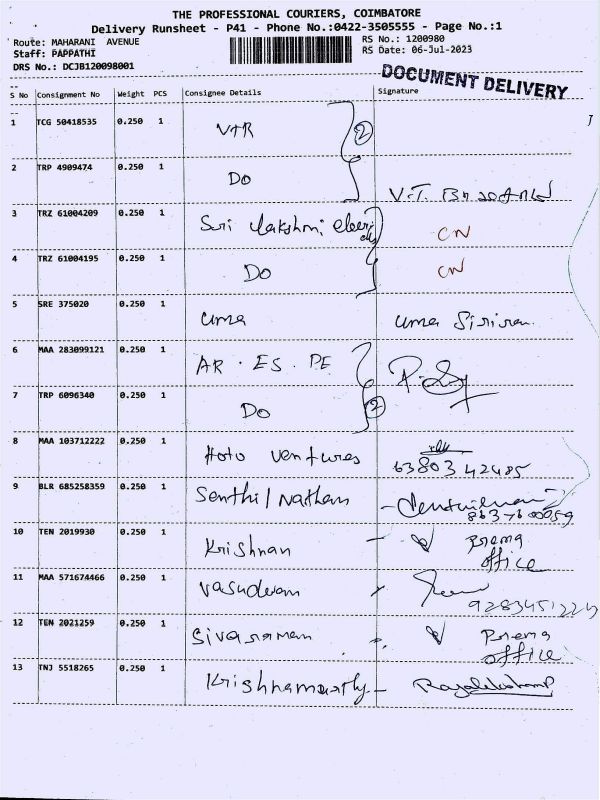 THE PROFESSIONAL COURIERS, COIMBATORE
Delivery Runsheet - P41 - Phone No.:0422-3505555 - Page No.:1
Route: MAHARANI AVENUE
Staff: PAPPATHI
DRS No.: DCJB120098001
RS No.: 1200980
RS Date: 06-Jul-2023
DOCUMENT DELIVERY
S No Consignment No Weight PCS Consignee Details Signature
1 TCG 50418535 0.250 1 VTR 2
2 TRP 4909474 0.250 1 Do V.T.
3 TRZ 61004209 0.250 1 Sri Lakshmi CN
4 TRZ 61004195 0.250 1 Do CN
5 SRE 375020 0.250 1 uma uma
6 MAA 283099121 0.250 1 AR . ES . PE
7 TRP 6096340 0.250 1 Do 2
8 MAA 103712222 0.250 1 Hoto ventures 63803 42485
9 BLR 685258359 0.250 1 Senthil Nathan
10 TEN 2019930 0.250 1 Krishnan - Prema
office
11 MAA 571674466 0.250 1 vasudevan
12 TEN 2021259 0.250 1 Sivaraman Prema
office
13 TNJ 5518265 0.250 1 Krishnamurthy -